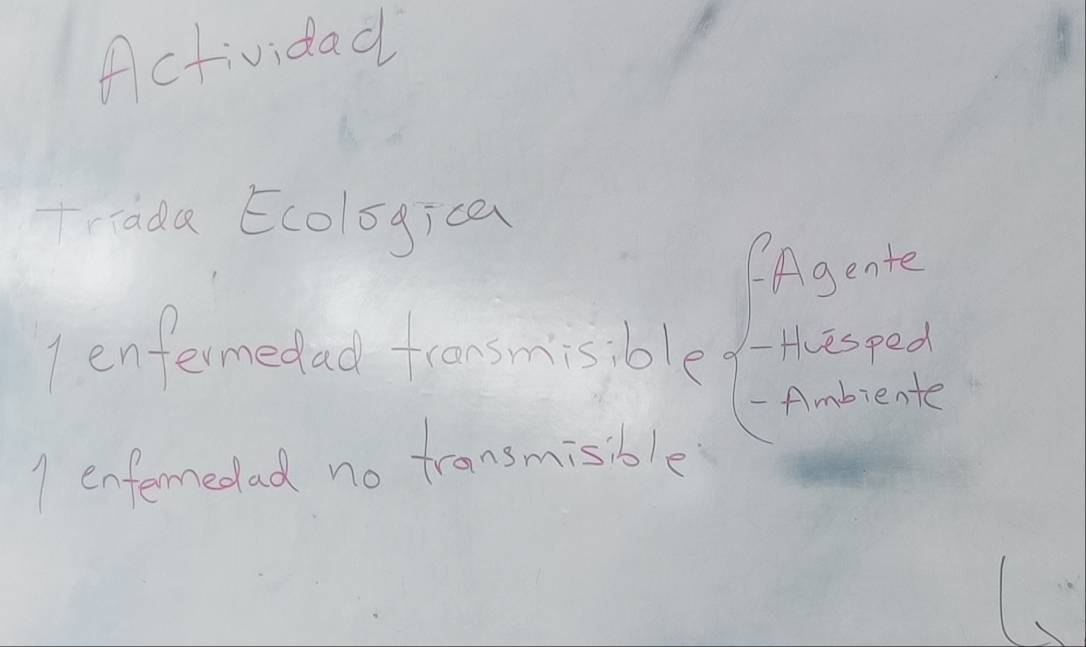 Actividad
Triada Ecológica
1 enfermedad transmisible
- Agente
- Huésped
- Ambiente
1 enfemedad no transmisible